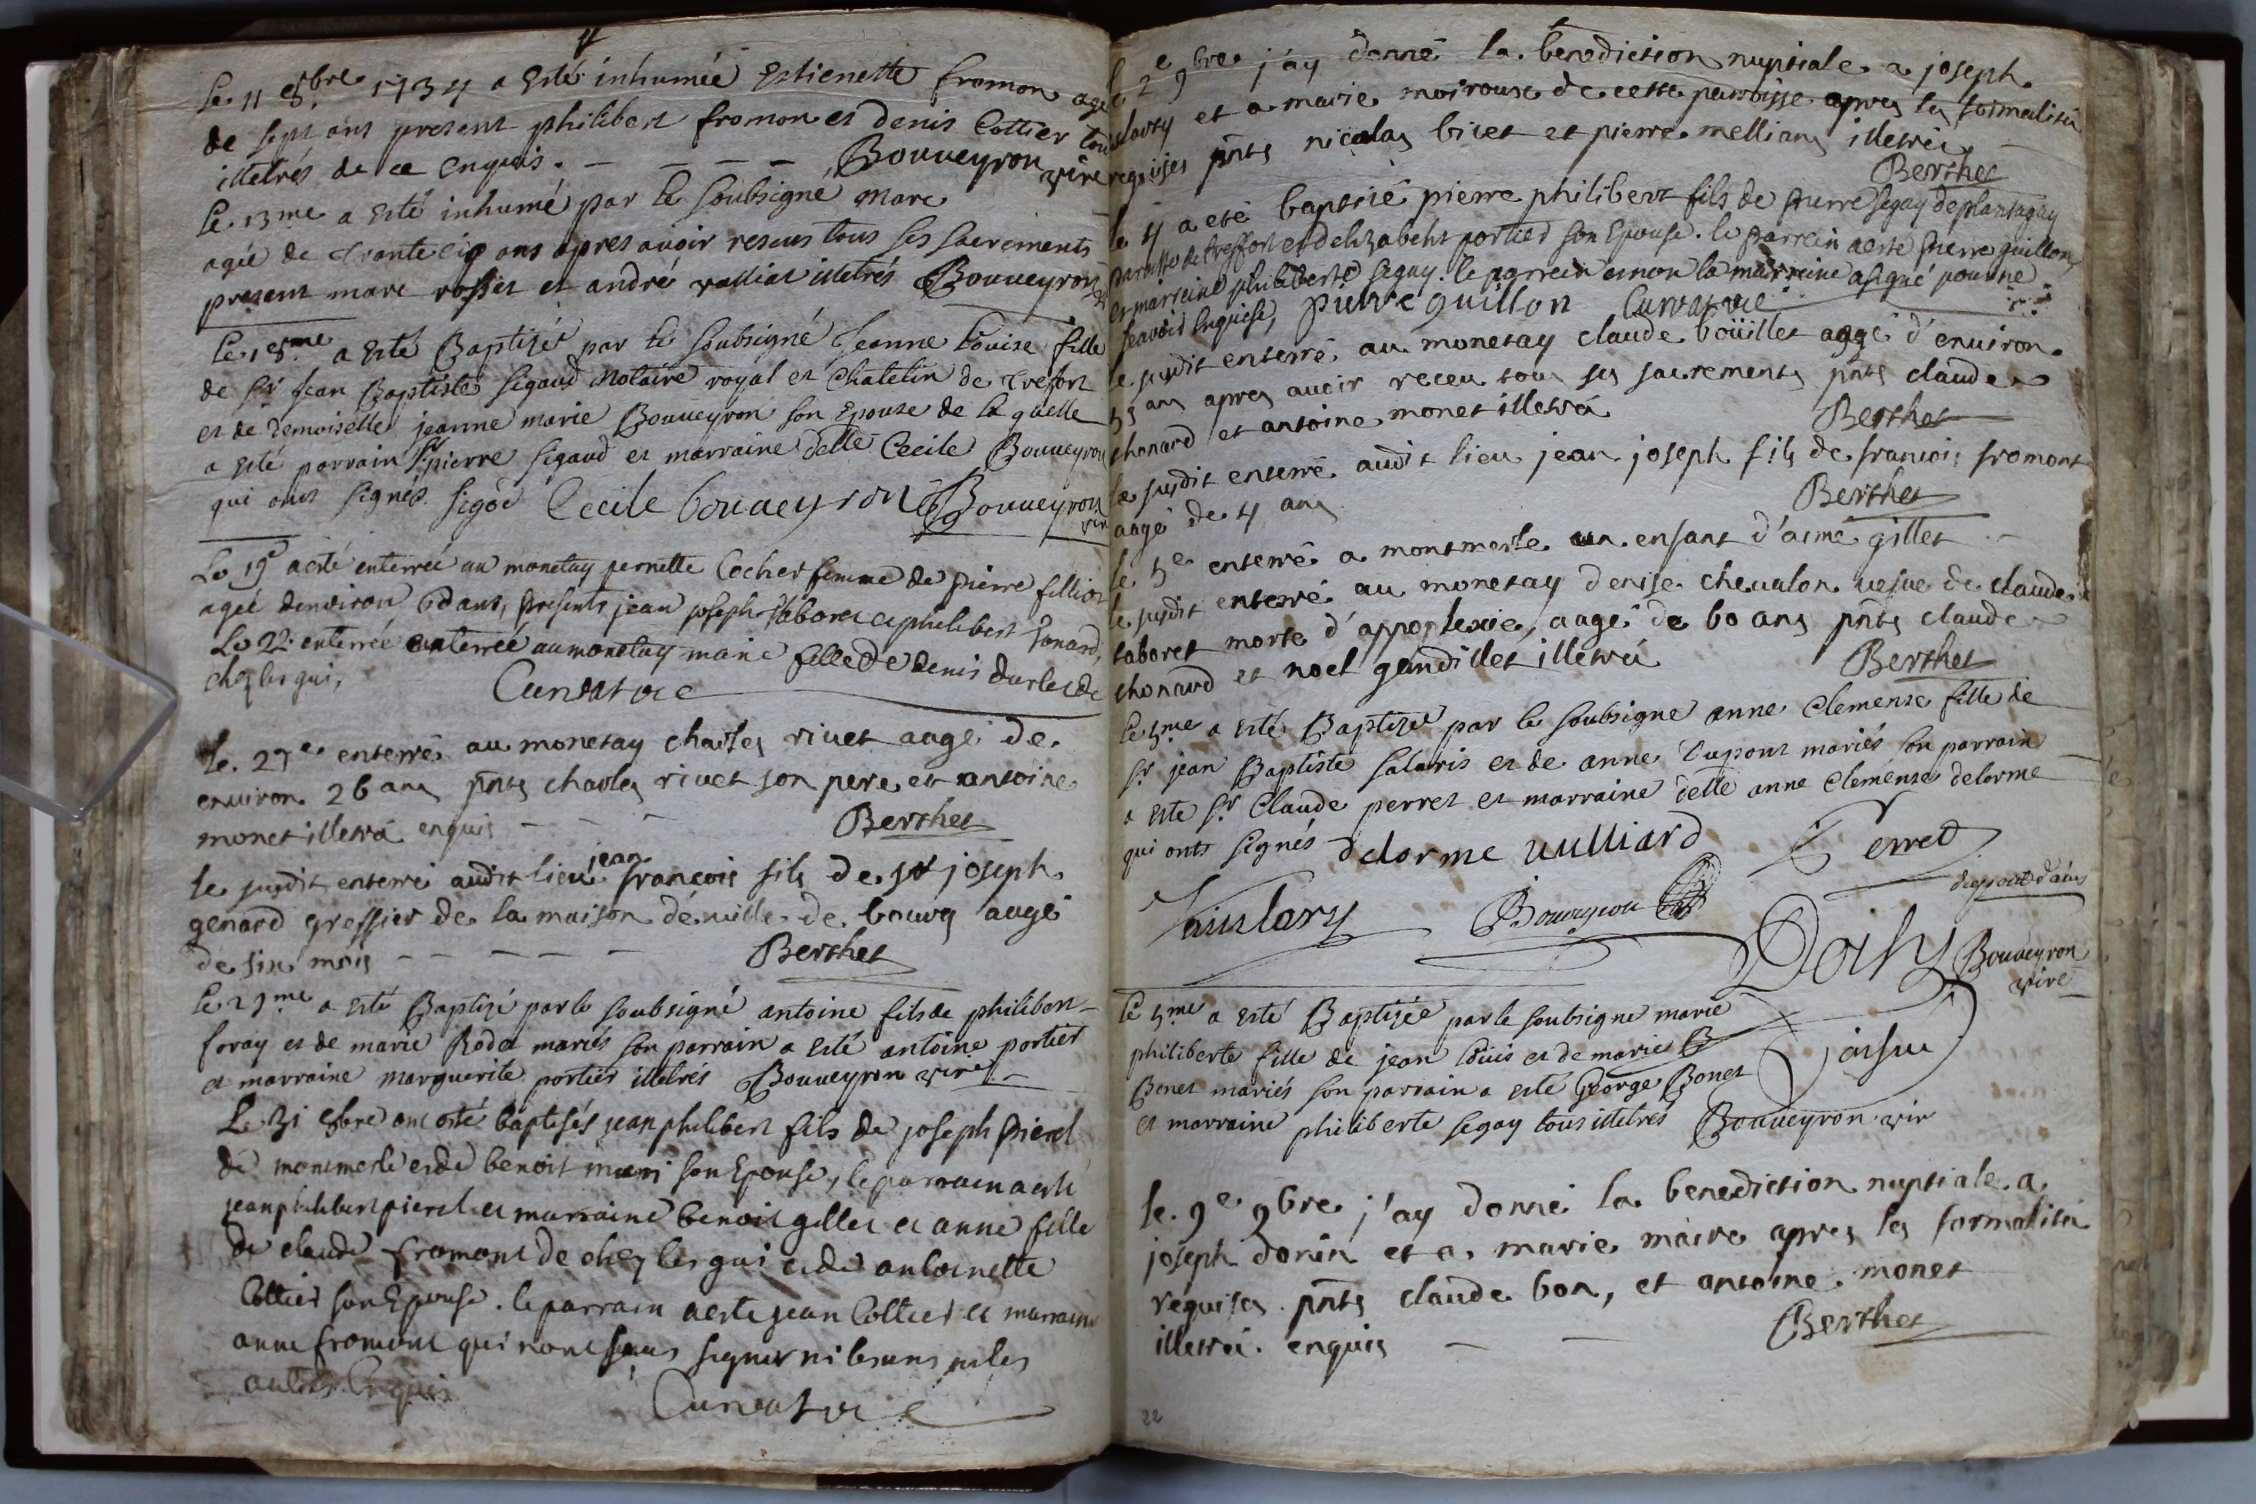 Le 11 8bre 1734 a Esté inhumée Estienette fromon agée
de sept ans present philibert fromon et denis Cottier tous
illetrés de ce Enquis. Bouveyron vire
Le 13me a Esté inhumé par le soubsigné Marc
agée de trante ans apres avoir reseus tous ses sacrements
present marc rosset et andré valliat illetrés Bouveyron
Le 18me a Esté Baptizée par le soubsigné Jeanne Louise fille
de Sr Jean Baptiste Sigaud Notaire royal et Chatelin de trefort
et de demoiselle jeanne marie Bouveyron son Epouse de la quelle
a Esté parrain Sr pierre Sigaud et marraine delle Cecile Bouveyron
qui ont signés Sigod Cecile bouveyron Bouveyron vir
Le 19e a esté enterrée au monetay pernette Cochet femme de pierre fillion
agée d'environ ans, presents jean joseph taboret et philibert Tonard,
Le 22e enterrée enterrée au monetay marie fille de denis durlet de
chez les gui, Curat vic
Le 27e enterré au monetay charles rivet aagé de
environ 26 ans pnts charles rivet son pere et antoine
monet illetrés enquis Berthet
le susdit enterré audit lieu jean françois fils de sr joseph
genard greffier de la maison de ville de bourg aagé
de six mois Berthet
Le 29me a Esté Baptizé par le soubsigné antoine fils de philibert
foray et de marie Rodet mariés son parrain a Esté antoine portier
et marraine marguerite portier illetrés Bouveyron vire
Le 31 8bre ont esté baptisés jean philibert fils de joseph pierel
de montmerle et de benoit muri son Epouse, le parrain a esté
jean philibert pierel et marraine benoit gillet et anne fille
de claude fromont de chez les gui et de antoinette
Cottier son Epouse. le parrain a esté jean Cottier et marraine
anne fromont qui nont sceus signer ni les uns ni les
autres Enquis
le 2e 9bre j'ay donné la benediction nuptiale a joseph
et a marie moirouse de cette parroisse apres les formalités
requises pnts nicolas bivet et pierre mellians illetrés
Berthet
le 4 a eté baptisé pierre philibert fils de pierre segay de plantaglay
parroisse de treffort et d'elizabeht portier son Epouse. le parrein a esté pierre guillon
et marreine philiberte segay. le parrein et non la marreine a signé pour ne
scavoir Enquise, pierre guillon
le susdit enterré au monetay claude boüillet aagé d'environ
55 ans apres avoir receu tous ses sacrements pnts claude
thonard et antoine monet illetrés Berthet
le susdit enterré audit lieu jean joseph fils de francois fromont
aagé de 4 ans Berthet
le 5e enterré a montmerle un enfant d'aimé gillet
le susdit enterré au monetay denise chevalon vefve de claude
taboret morte d'appoplexie, aagé de 60 ans pnts claude
thonard et noel gandillet illetrés Berthet
Le 5me a esté Baptizée par le soubsigne anne Clemense fille de
Sr jean Baptiste salaris et de anne Dupont mariés son parrain
a Este Sr Claude perret et marraine delle anne Clemense delorme
qui onts signés delorme vulliard Perret
Bourgeon
dupont d'ains
Bouveyron
vire
Le 5me a Esté Baptizée par le soubsigne marie
philiberte fille de jean Loüis et de marie
Bonet mariés son parrain a esté George Bonet
et marraine philiberte segay tous illetrés Bouveyron vir
le 9e 9bre j'ay donné la benediction nuptiale a
joseph donin et a marie maire apres les formalités
requises pnts claude bon, et antoine monet
illetrés enquis Berthet
22